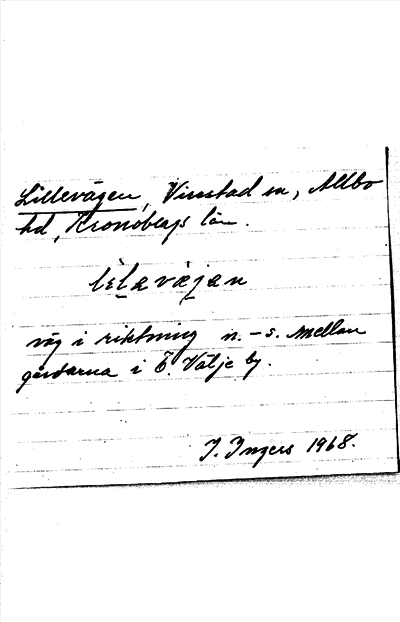 Lillevägen, Virestad sn, Allbo
hd, Kronobergs län.
väg i riktning n. – s. mellan
gårdarna i Ö. Välje by.
I. Ingers 1968.